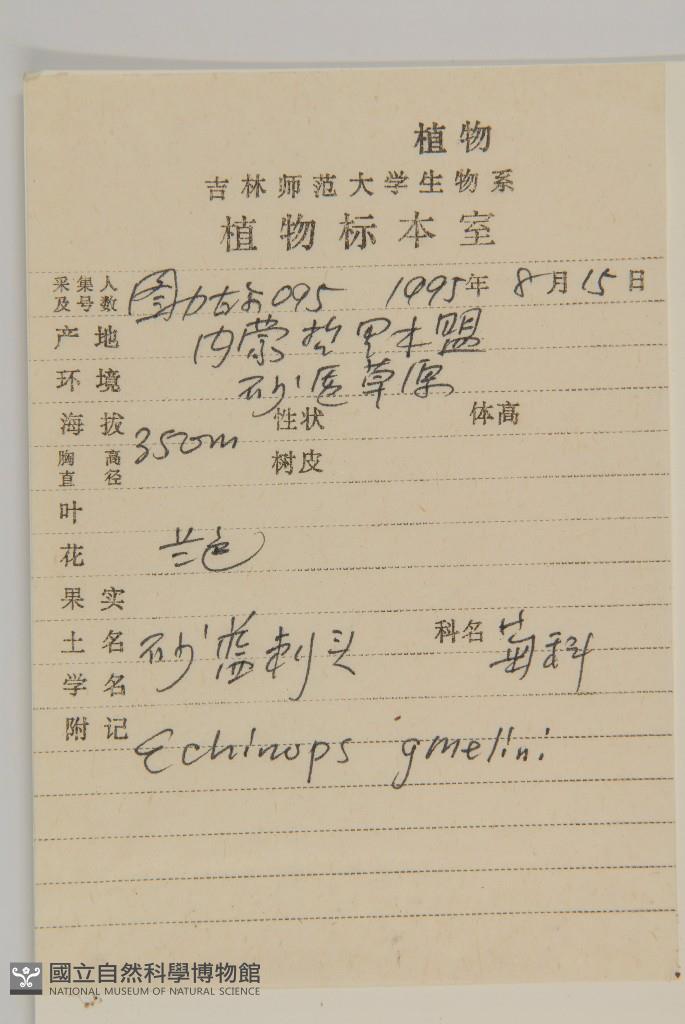 植物
吉林师范大学生物系
植物标本室
采集人及号数 图力古尔095 1995年 8月15日
产地 内蒙哲里木盟
环境 砂质草原
海拔 350m 性状 体高
胸高直径 树皮
叶
花 兰色
果实
土名 砂蓝刺头 科名 菊科
学名
附记 Echinops gmelini
國立自然科學博物館
NATIONAL MUSEUM OF NATURAL SCIENCE